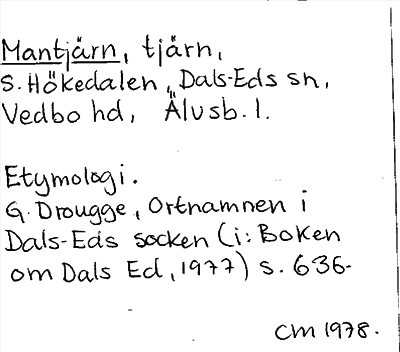 Mantjärn, tjärn,
S. Hökedalen, Dals-Eds sn,
Vedbo hd, Älvsb. l.
Etymologi.
G. Drougge, Ortnamnen i
Dals-Eds socken (i: Boken
om Dals Ed, 1977) s. 636.
CM 1978.